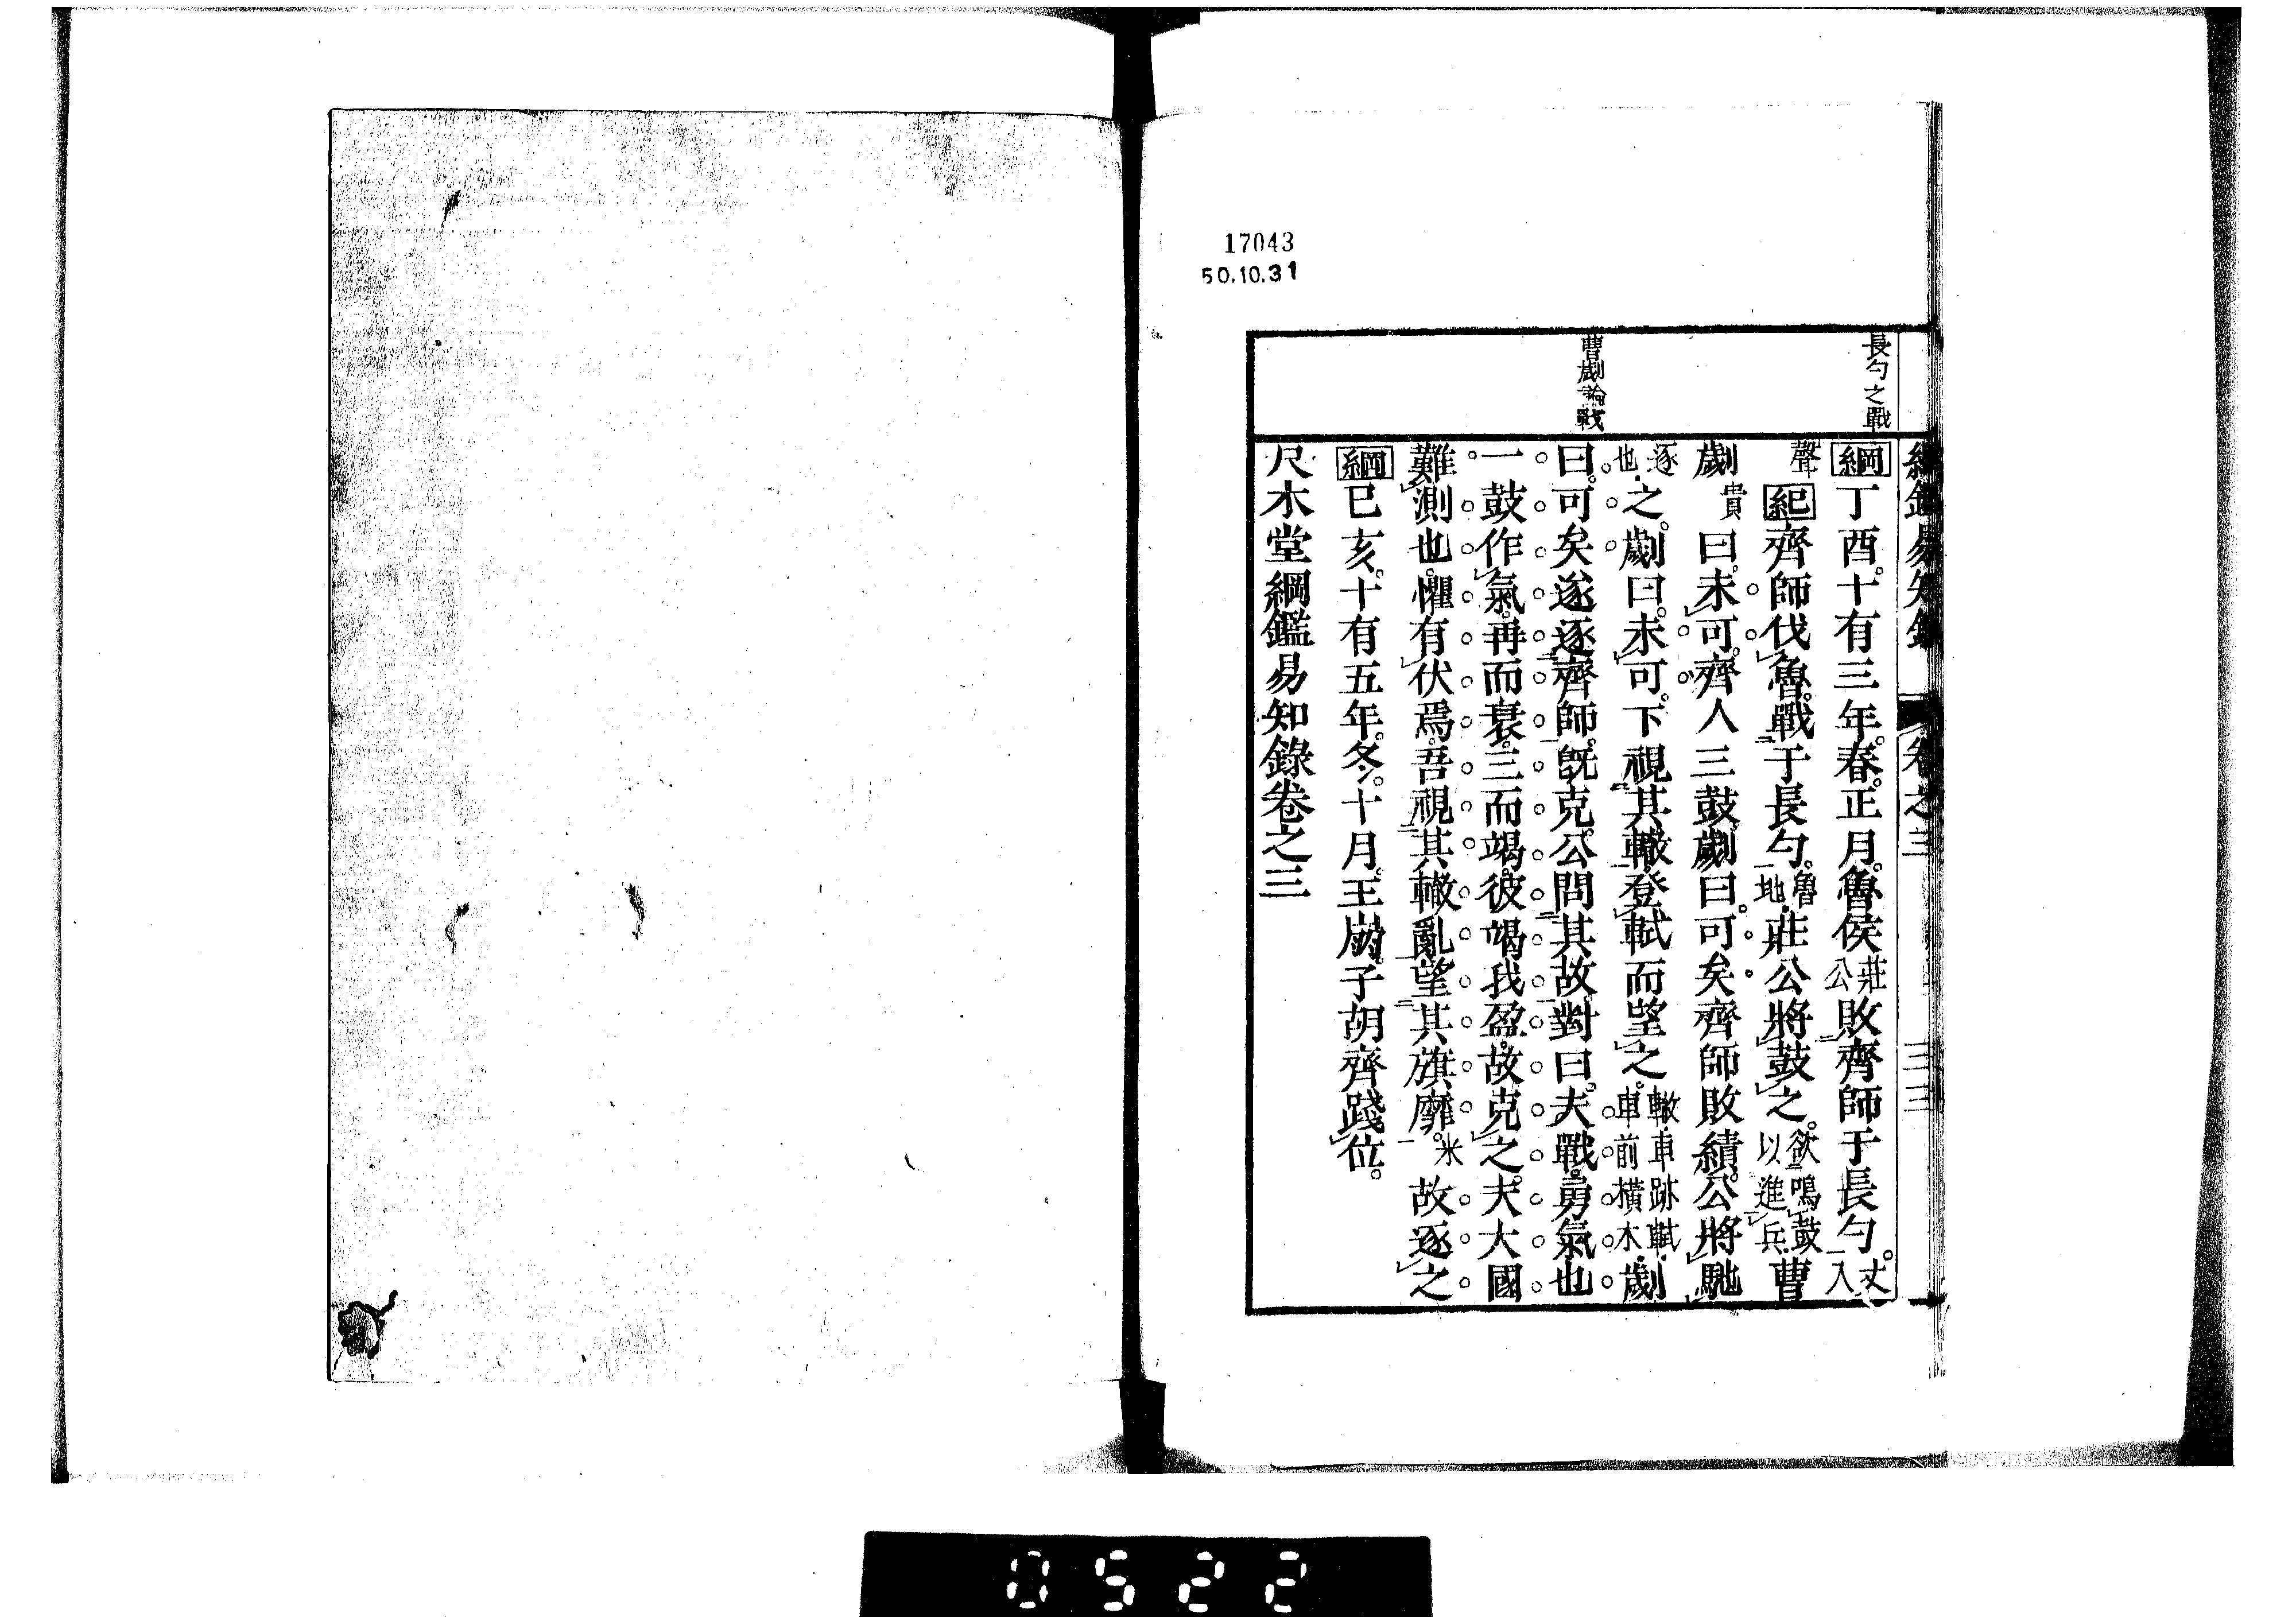 17043
50.10.31
長勺之戰
曹劌論戰
綱鑑易知錄 卷之三 三三
綱丁酉。十有三年。春。正月。魯侯莊公敗齊師于長勺。丈入
聲紀齊師伐魯。戰于長勺。魯地。莊公將鼓之。欲鳴鼓以進兵。曹
劌貴曰。未可。齊人三鼓。劌曰。可矣。齊師敗績。公將馳
逐也。之。劌曰。未可。下視其轍。登軾而望之。轍。車跡。軾。車前橫木。劌
曰。可矣。遂逐齊師。旣克。公問其故。對曰。夫戰。勇氣也
一鼓作氣。再而衰。三而竭。彼竭我盈。故克之。夫大國
難測也。懼有伏焉。吾視其轍亂。望其旗靡。米故逐之
綱己亥。十有五年。冬。十月。王崩。子胡齊踐位。
尺木堂綱鑑易知錄卷之三
0522